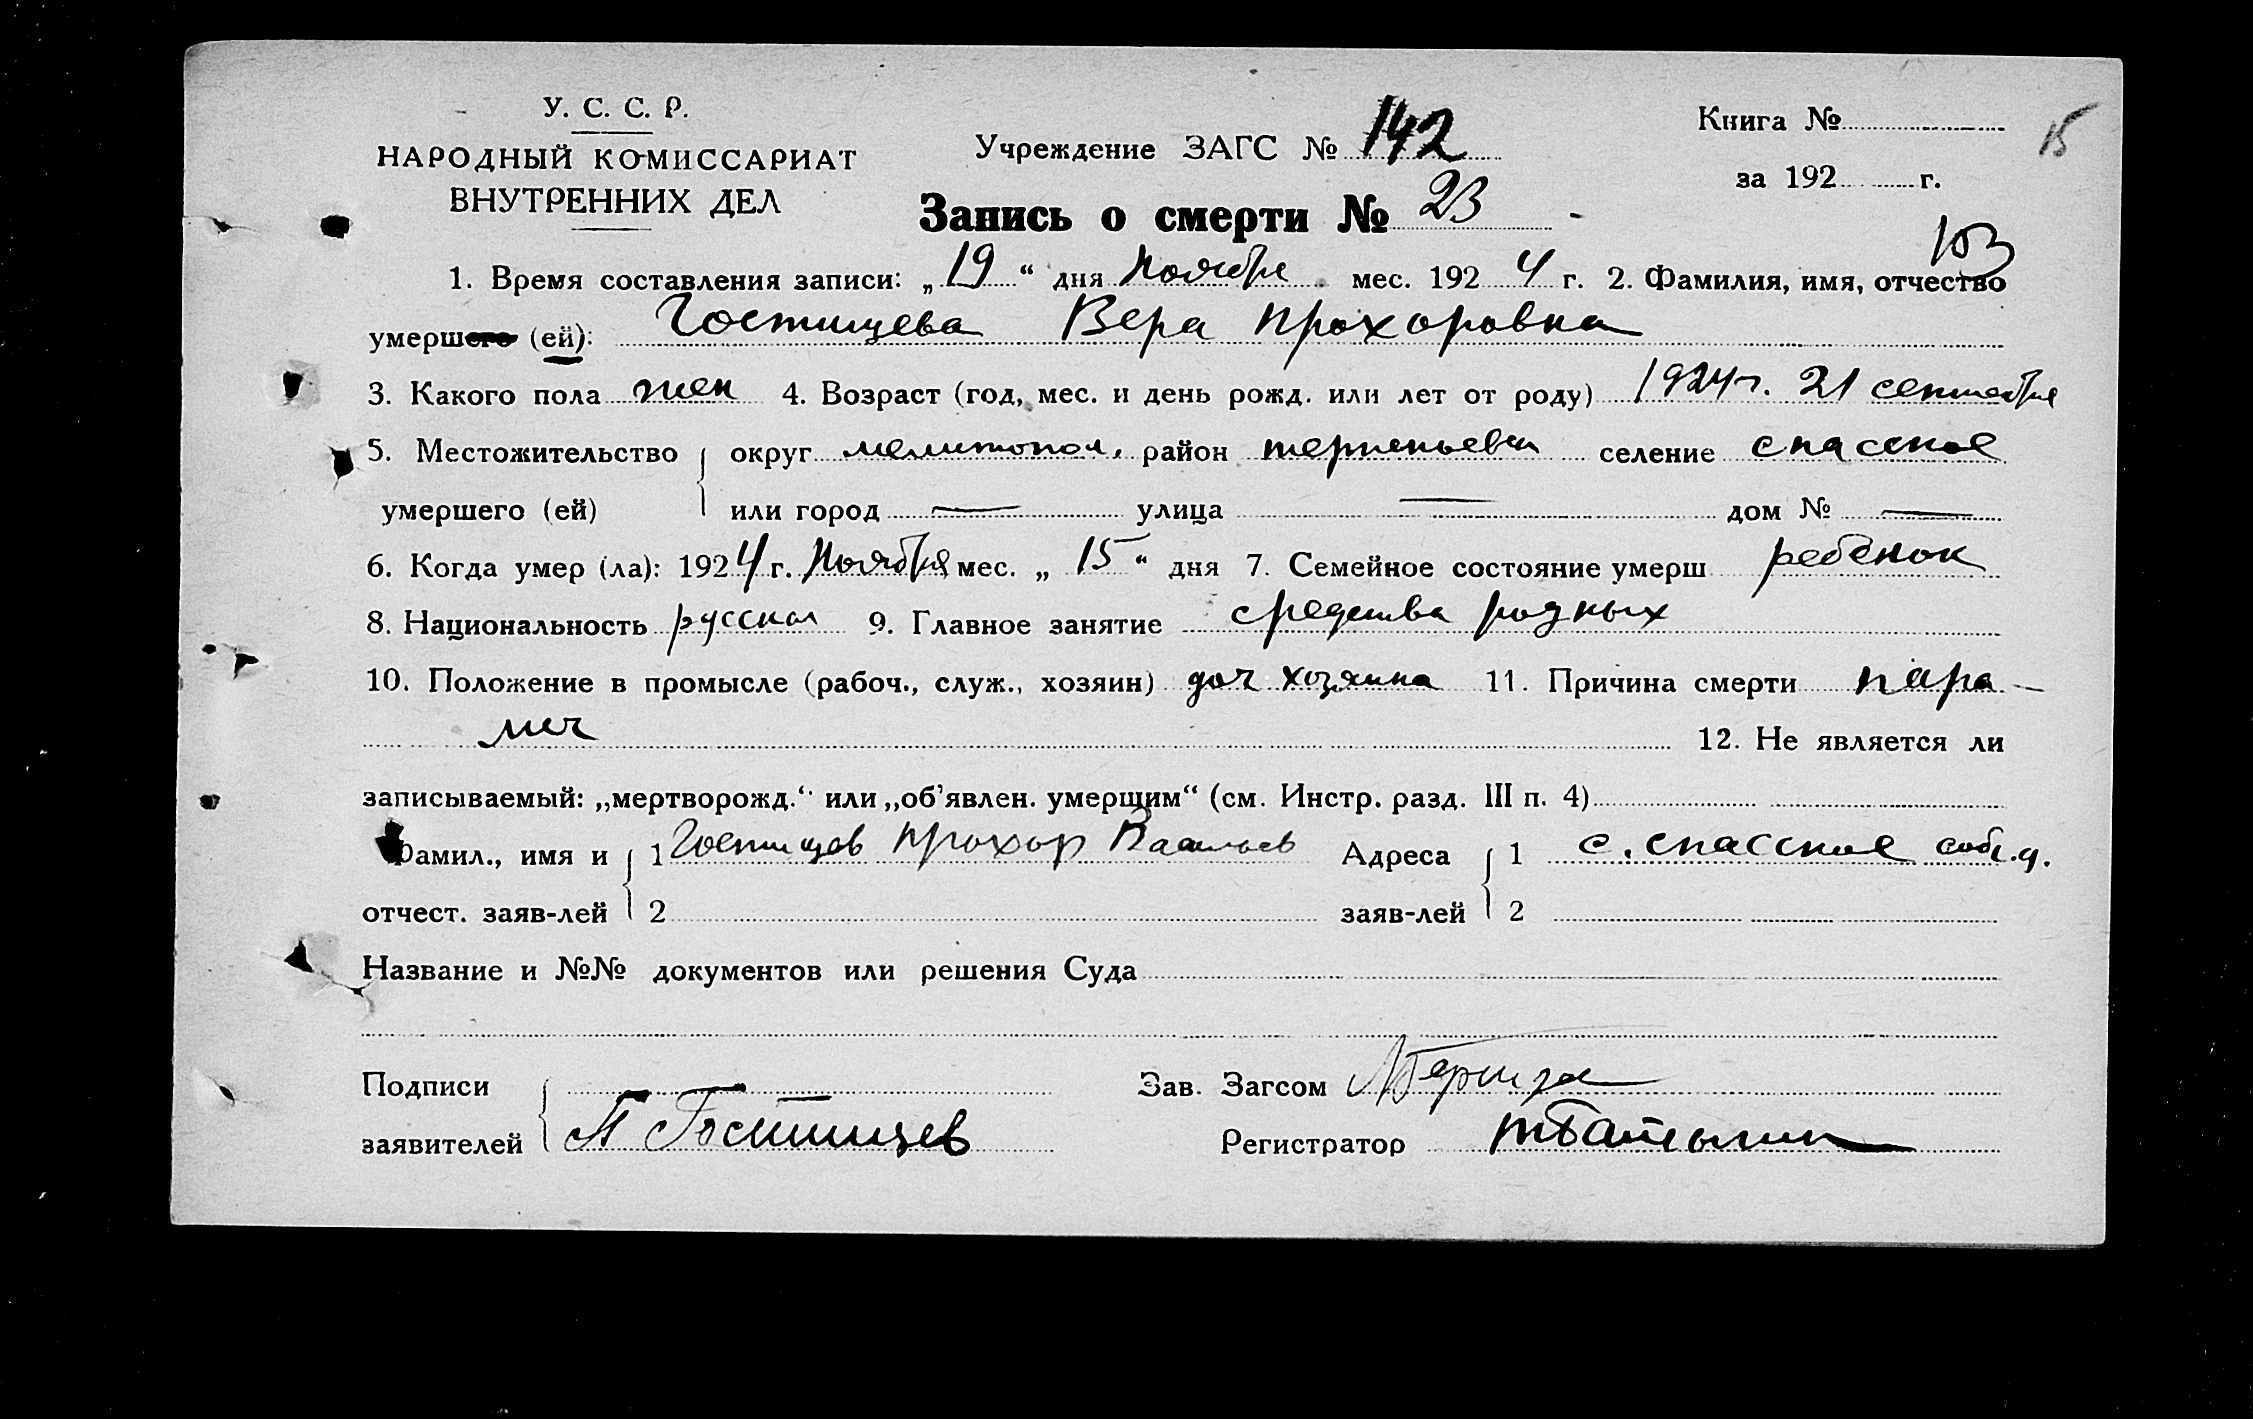 У. С. С. Р.
НАРОДНЫЙ КОМИССАРИАТ
ВНУТРЕННИХ ДЕЛ
Учреждение ЗАГС № 142
Книга №
15
за 192 г.
Запись о смерти № 23
103
1. Время составления записи: „19“ дня Ноября мес. 1924 г. 2. Фамилия, имя, отчество
умершего (ей): Гостищева Вера Прохоровна
3. Какого пола жен 4. Возраст (год, мес. и день рожд. или лет от роду) 1924 г. 21 сентября
5. Местожительство округ мелитопол. район терпеньевск селение спасское
умершего (ей) или город — улица — дом № —
6. Когда умер (ла): 1924 г. Ноября мес. „15“ дня 7. Семейное состояние умерш ребенок
8. Национальность русская 9. Главное занятие средства родных
10. Положение в промысле (рабоч., служ., хозяин) доч хозяина 11. Причина смерти пара-
лич
12. Не является ли
записываемый: „мертворожд.“ или „об’явлен. умершим“ (см. Инстр. разд. III п. 4)
Фамил., имя и 1 Гостищев Прохор Васильев Адреса 1 с. спасское соб. д.
отчест. заяв-лей 2 заяв-лей 2
Название и №№ документов или решения Суда
Подписи Зав. Загсом
заявителей П Гостищев Регистратор